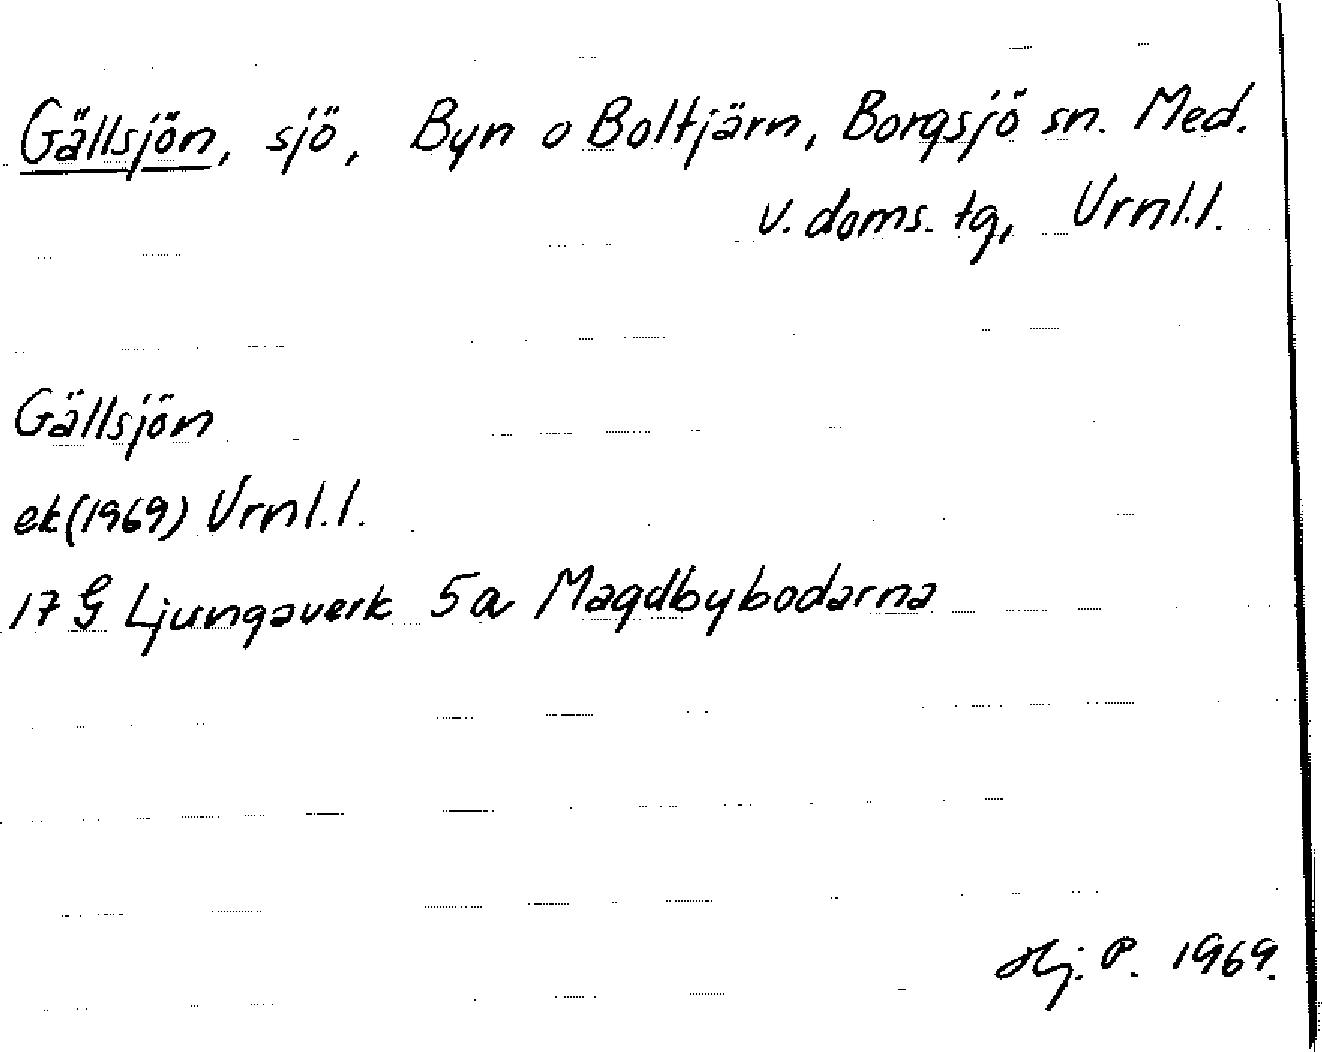 Gällsjön, sjö, Byn o Boltjärn, Borgsjö sn. Med.
v. doms. tg, Vrnl.l.
Gällsjön
ek (1969) Vrnl.l.
17 G Ljungaverk 5a Magdbybodarna
Hj. P. 1969.